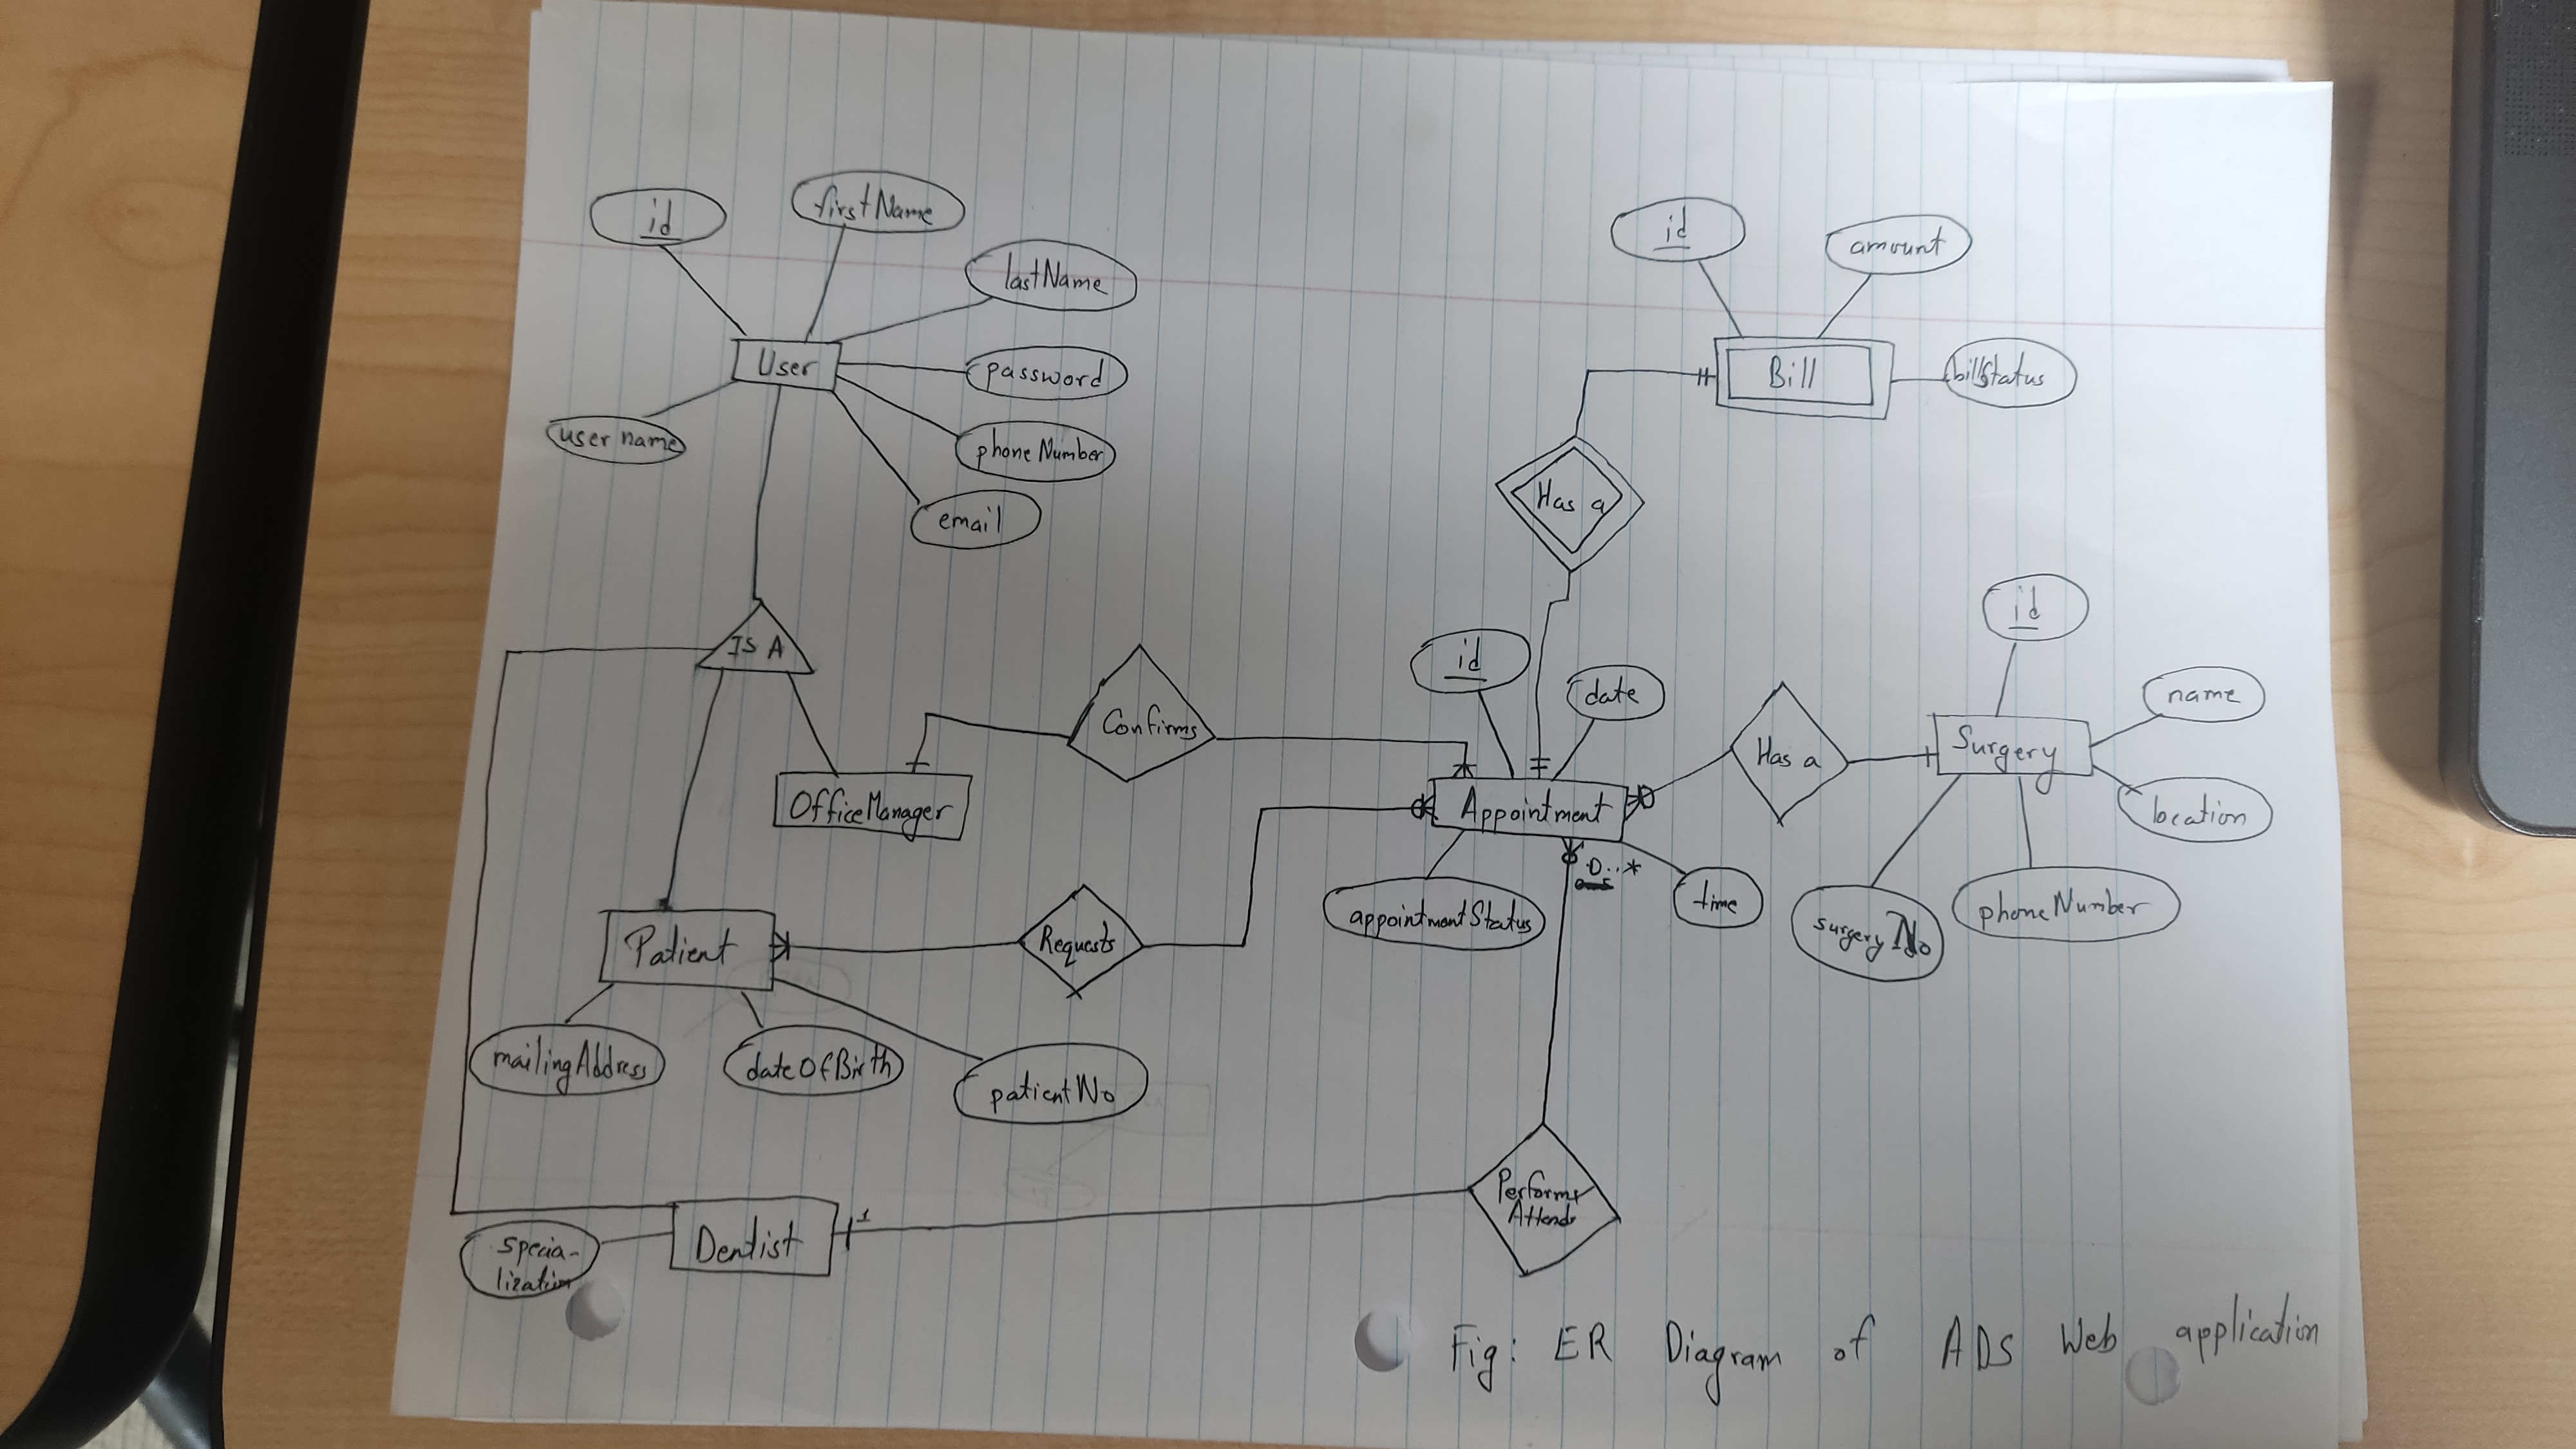 id
firstName
lastName
User
password
username
phoneNumber
email
id
amount
Bill
billStatus
Has a
IS A
Confirms
id
date
id
name
Surgery
Has a
location
OfficeManager
Appointment
0..*
appointmentStatus
time
surgeryNo
phoneNumber
Patient
Requests
mailingAddress
dateOfBirth
patientNo
Performs
Attends
1
Dentist
specia-
lization
Fig: ER Diagram of ADS Web application